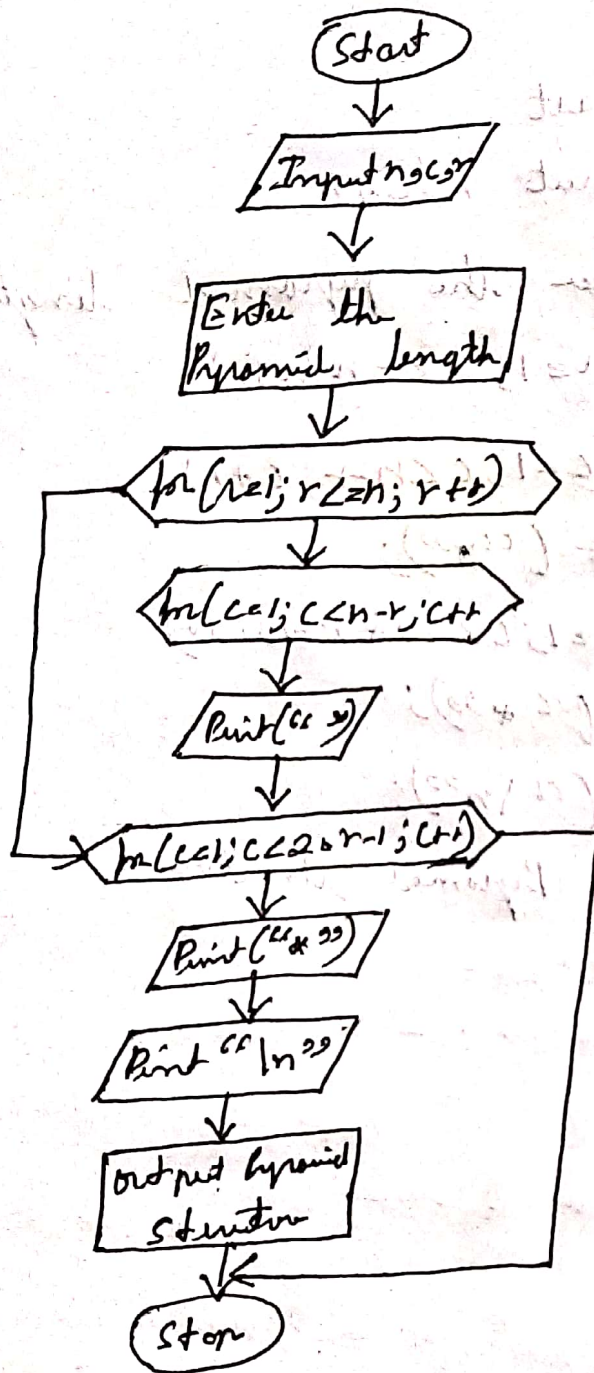 Start
Input n, c, r
Enter the
Pyramid length
for(r=1; r<=n; r++)
for(c=1; c<n-r; c++
Print(" ")
for(c=1; c<2*r-1; c++)
Print("*")
Print "\n"
output Pyramid
Stop